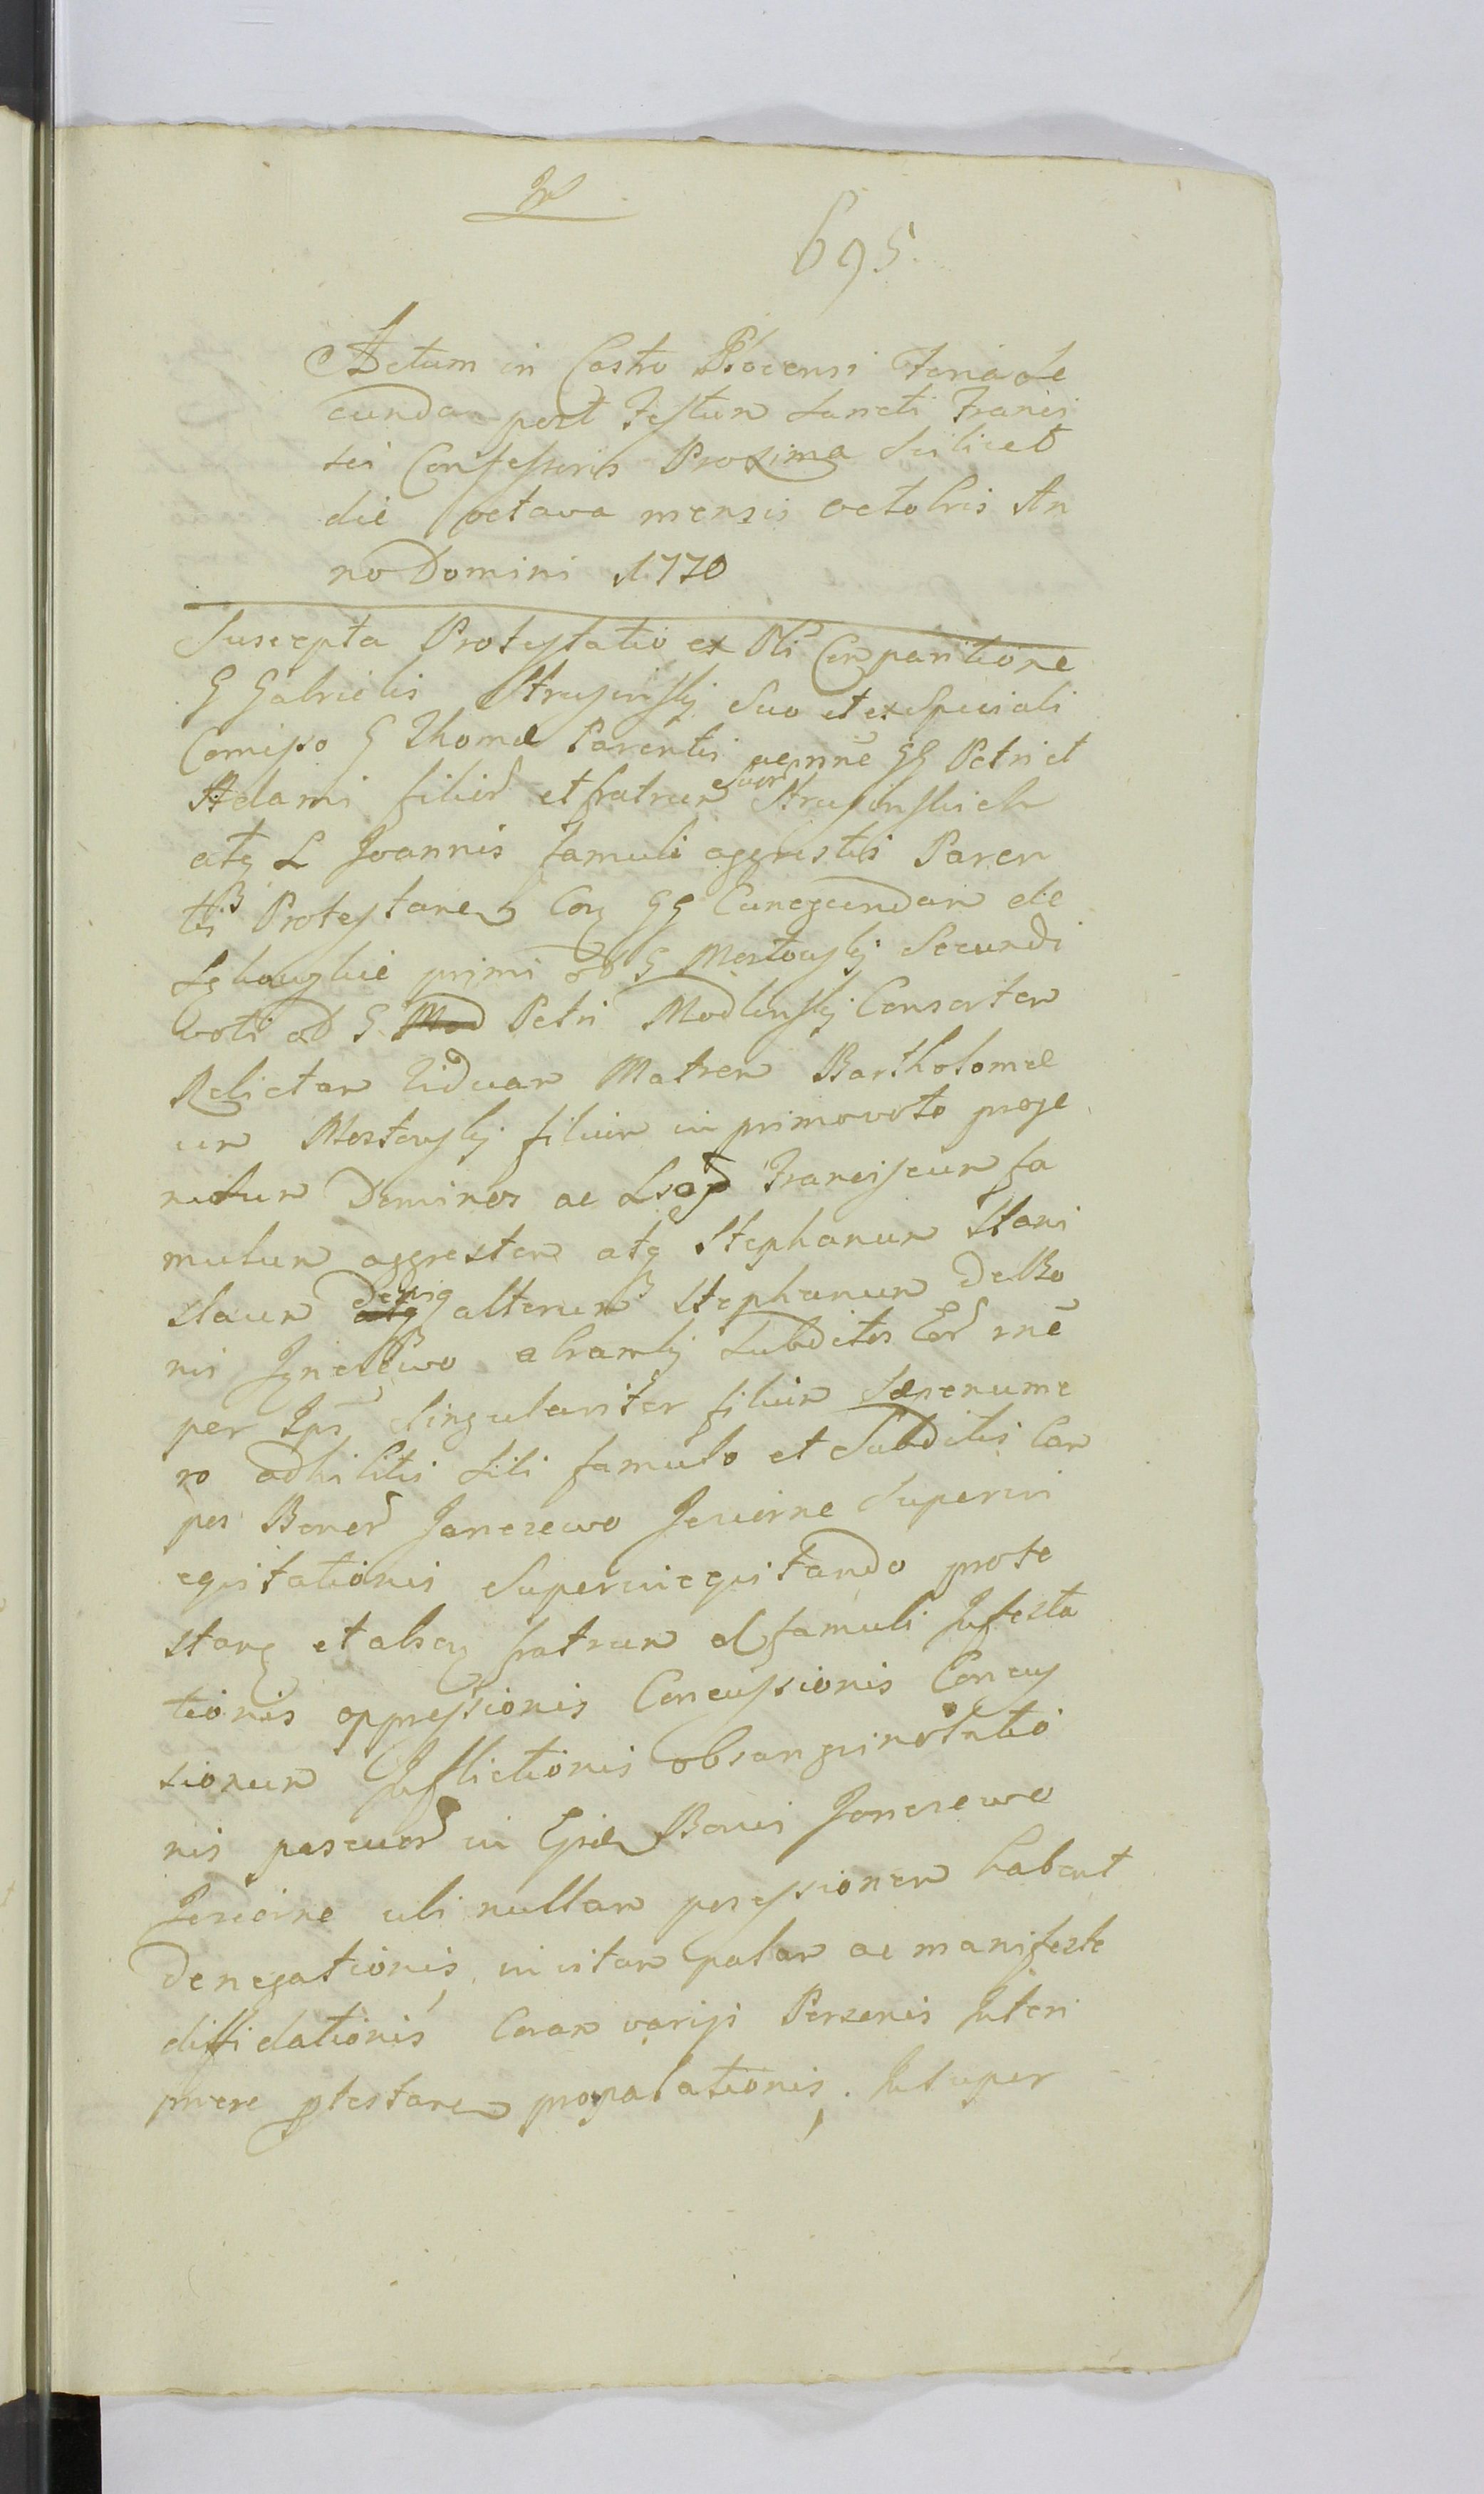 695.
Actum in Castro Plocensi Feria Se
cunda post Festum Sancti Francis
sci Confessoris Proxima Scilicet
die octava mensis octobris An
no Domini 1770
Suscepta Protestatio ex Obl Comparitione
G Gabrielis Strusinskj Suo et ex Speciali
Comisso G Thomæ Parentis ac nne GG Petri et
Adami filior et fratrum suor Strusinskich
atq L Joannis famuli aggrestis Paren
tis Protestanem Con GG Cunegundam de
primi ad G Mostowskj Secundi
voti ad G Mod Petri Modlinskj Consortem
Relictam Viduam Matrem Bartholomæ
um Mostowskj filium in primo voto proge
nitum Dominos ac Franciscum fa
mulum aggrestem atq Stephanum Stani
slaum atq deniq alterum Stephanum De Bo
nis Subditos Eor nne
per Ips Singulariter filium Sæpenume
ro adhibitis Sibi famulo et Subditis Cam
pos Bonor Janczewo Superin
eqitationis Superineqitando prote
stanq et absq fratrum et famuli Infesta
tionis oppressionis Concussionis Concus
sionum Inflictionis obsanguinolatio
nis pascuor in Bonis Janczewo
ubi nullam possessionem habent
Denegationis, in vitam palam ac manifeste
diffidationis Coram varijs Personis Interi
mere ptestanem propalationis, Insuper